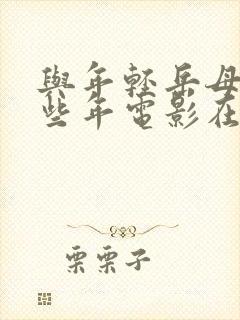 與年輕岳母
些年電影在
栗栗子